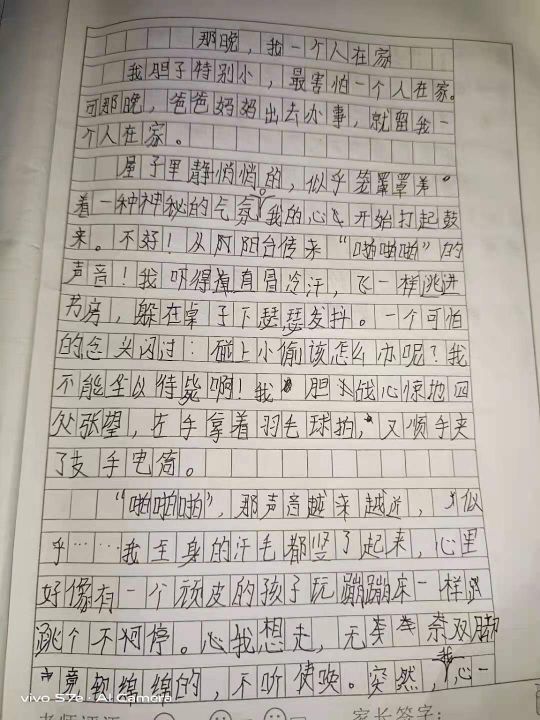 那晚，我一个人在家
我胆子特别小，最害怕一个人在家。
可那晚，爸爸妈妈出去办事，就留我一
个人在家。
屋子里静悄悄的，似乎笼罩
着一种神秘的气氛，我的心开始打起鼓
来。不好！从阳台传来“啪啪啪”的
声音！我吓得直冒冷汗，飞一样跳进
书房，躲在桌子下瑟瑟发抖。一个可怕
的念头闪过：碰上小偷该怎么办呢？我
不能坐以待毙啊！我胆战心惊地四
处张望，左手拿着羽毛球拍，又顺手夹
了支手电筒。
“啪啪啪”，那声音越来越近，似
乎……我全身的汗毛都竖了起来，心里
好像有一个顽皮的孩子玩蹦蹦床一样
跳个不停。心我想走，无奈双脚
竟软绵绵的，不听使唤。突然，我心一
vivo S7e · AI Camera
家长签字：